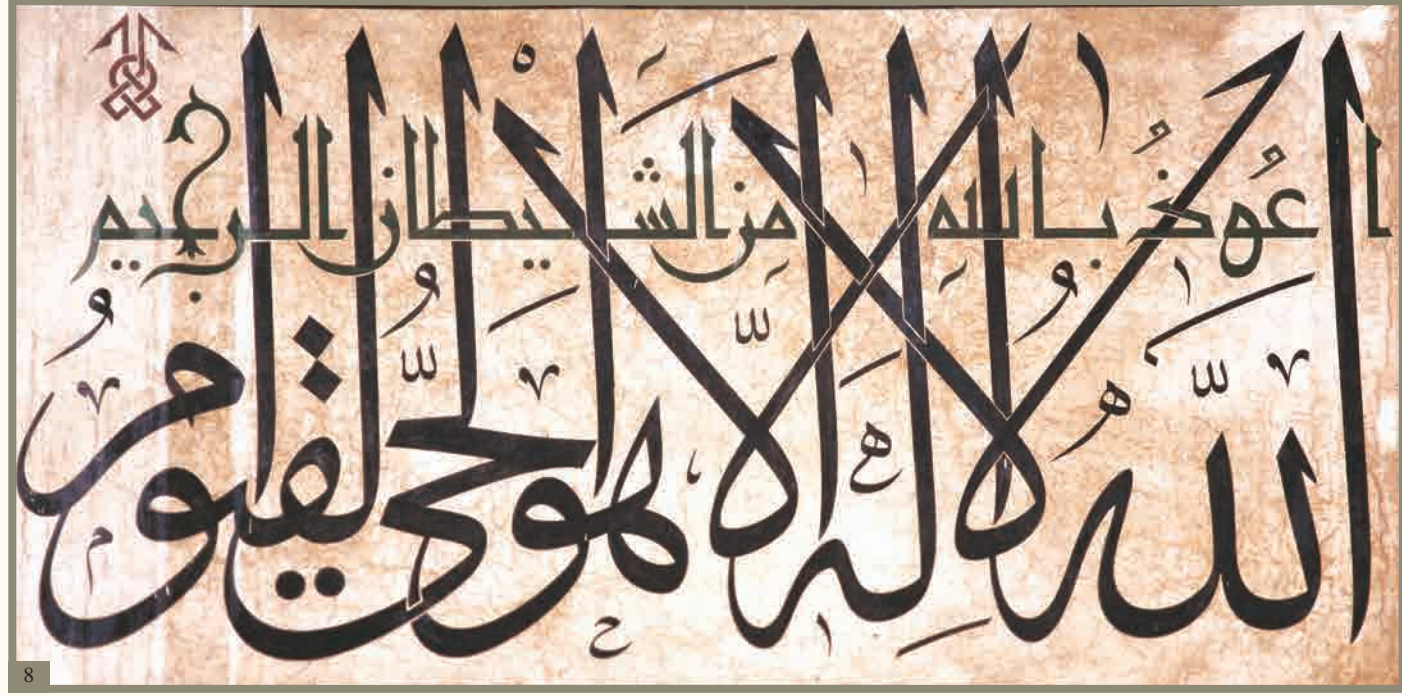 اعوذ بالله من الشيطان الرجيم
الله لا اله الا هو الحي القيوم
8